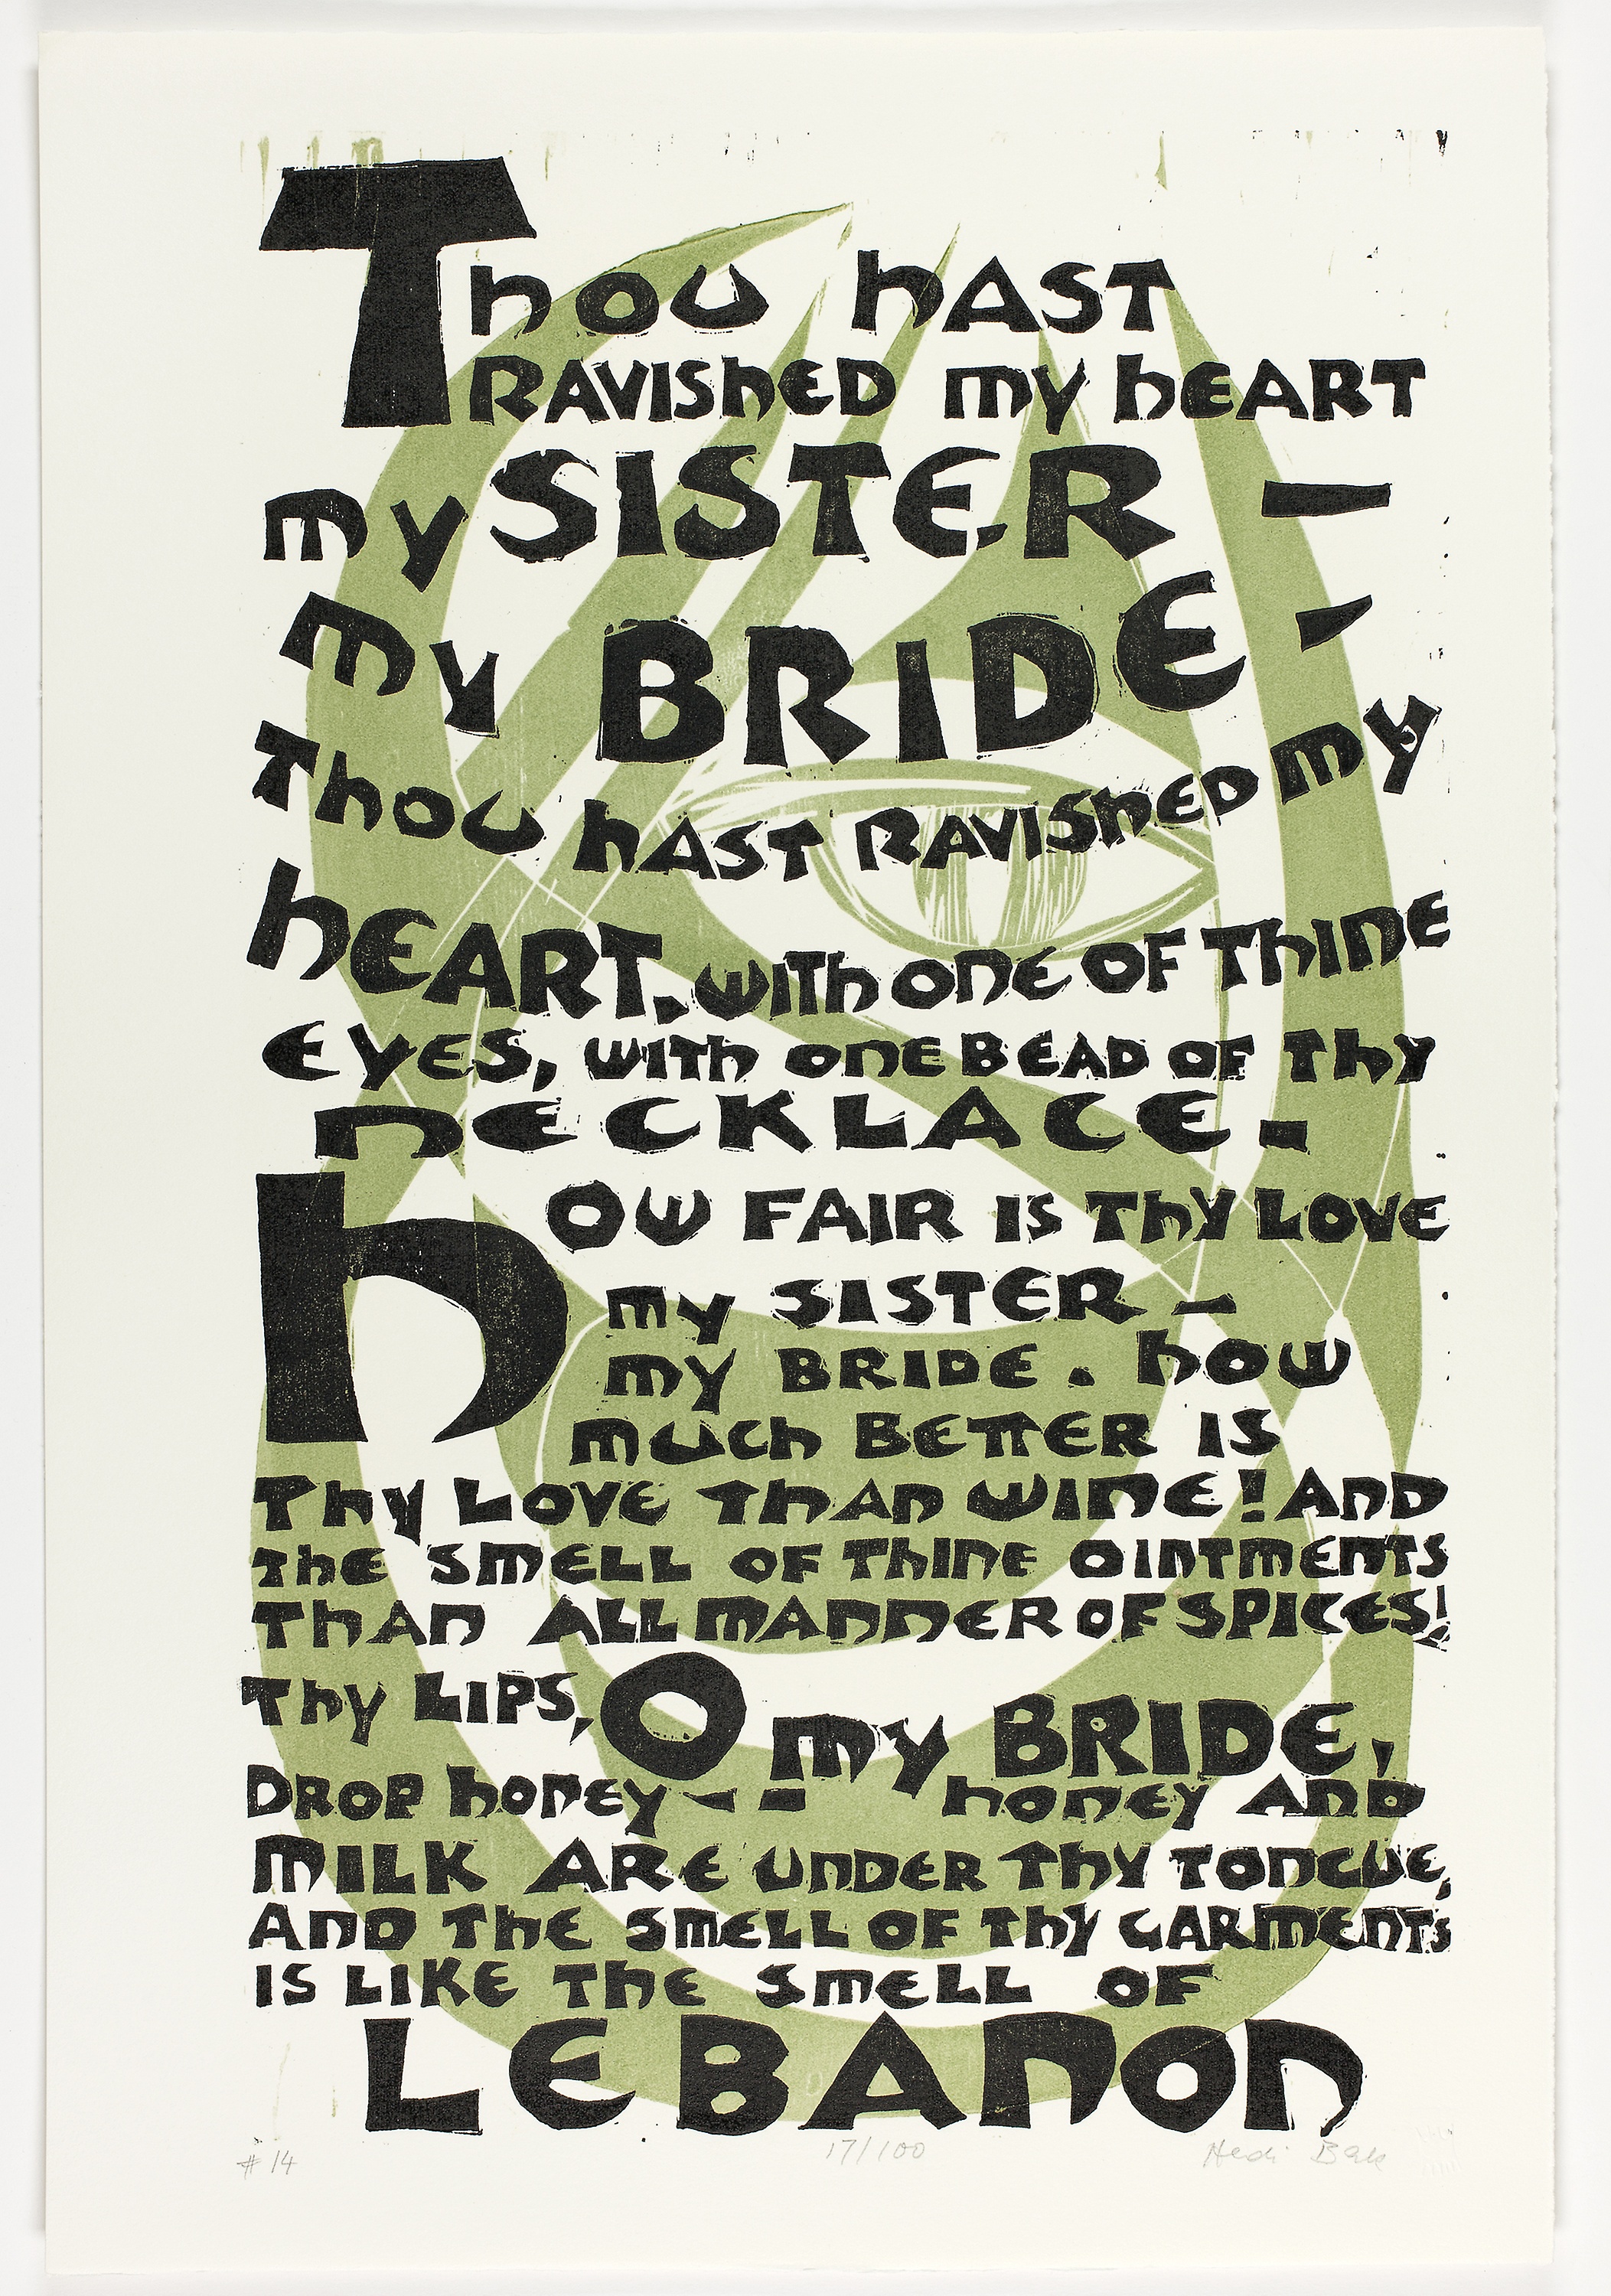 Thou hAST
RAVIShED my hEART
my SISTER –
my BRIDE –
Thou hAST RAVIShED my
hEART. with onE OF ThinE
EyES, with onE BEAD OF Thy
nECKLACE.
hOW FAIR IS ThY LOVE
my SISTER –
my BRIDE. hOW
much BETTER IS
Thy LOVE ThAn WinE! AnD
ThE SmELL OF ThinE OinTmEnTS
ThAn ALL mAnnER OF SPICES!
Thy LIPS, O my BRIDE,
DROP honEy – – honEy AnD
mILK ARE unDER Thy TOnGuE,
AnD ThE SmELL OF Thy GARmEnTS
IS LIKE ThE SmELL OF
LEBAnOn
#14 17/100 Hedi Bak